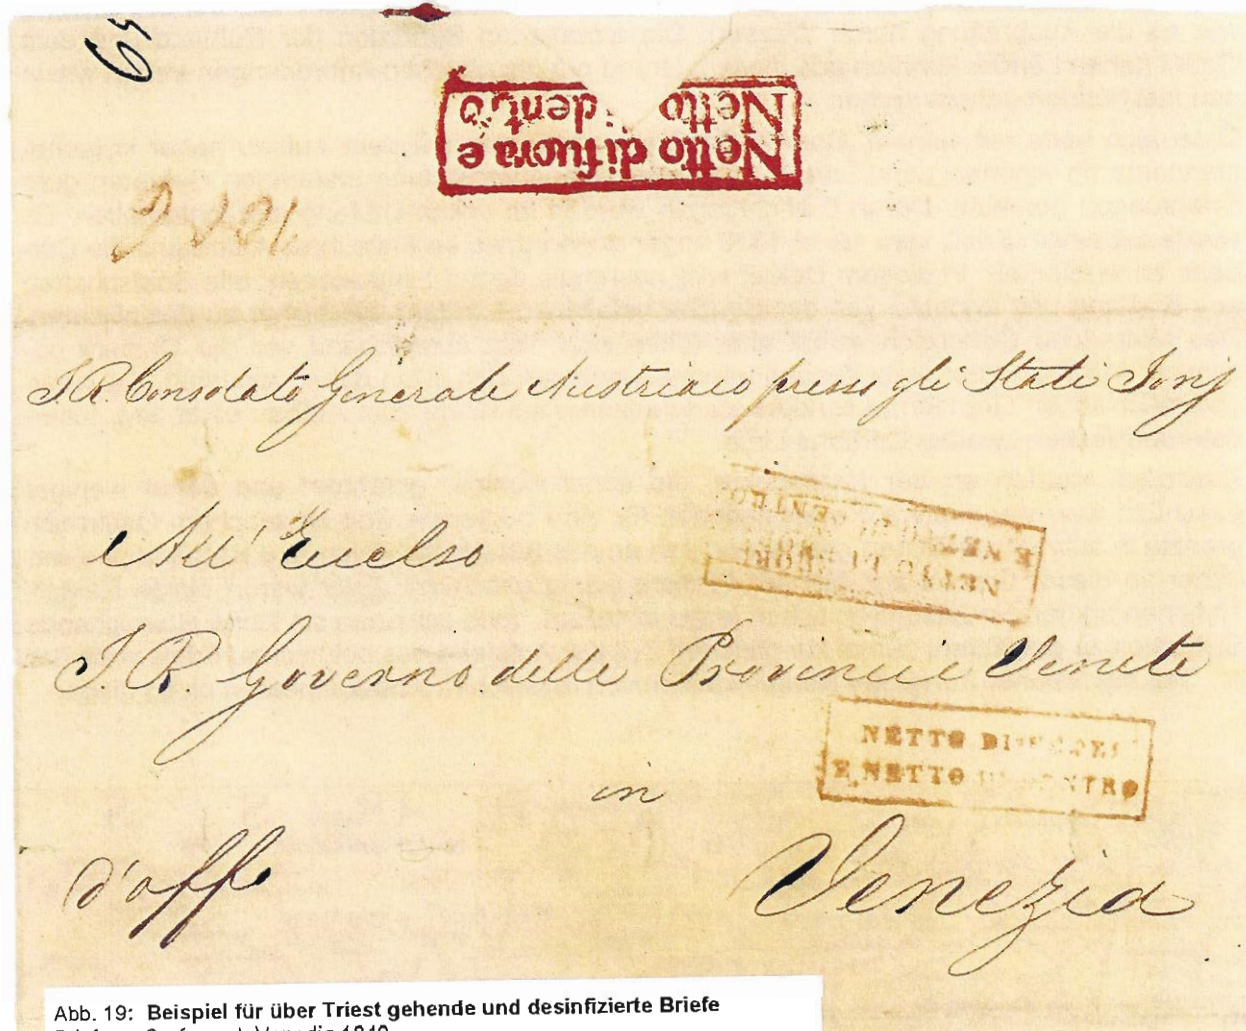 Netto di fuora e
Netto dentro
I. R. Consolato Generale Austriaco presso gli Stati Ionj
All' Eccelso
NETTO DI FUORI
E NETTO DI DENTRO
I R Governo delle Provincie Venete
NETTO DI FUORI
E NETTO DI DENTRO
in
d'aff.
Venezia
Abb. 19: Beispiel für über Triest gehende und desinfizierte Briefe